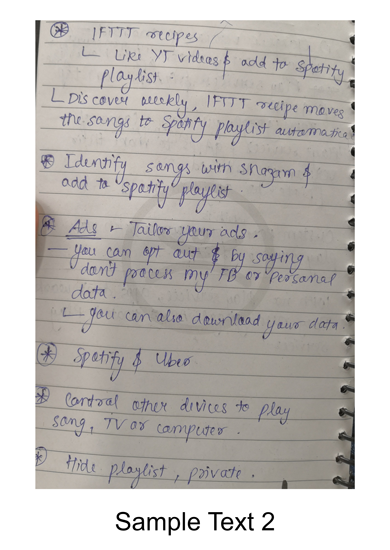 IFTTT recipes
Like YT videos & add to Spotify
playlist.
Discover weekly, IFTTT recipe moves
the songs to Spotify playlist automatica
Identify songs with shazam &
add to spotify playlist.
Ads - Tailor your ads.
- you can opt out & by saying
don't process my FB or personal
data.
you can also download your data.
Spotify & Uber
Control other devices to play
song, TV or computer.
Hide playlist, private.
Sample Text 2